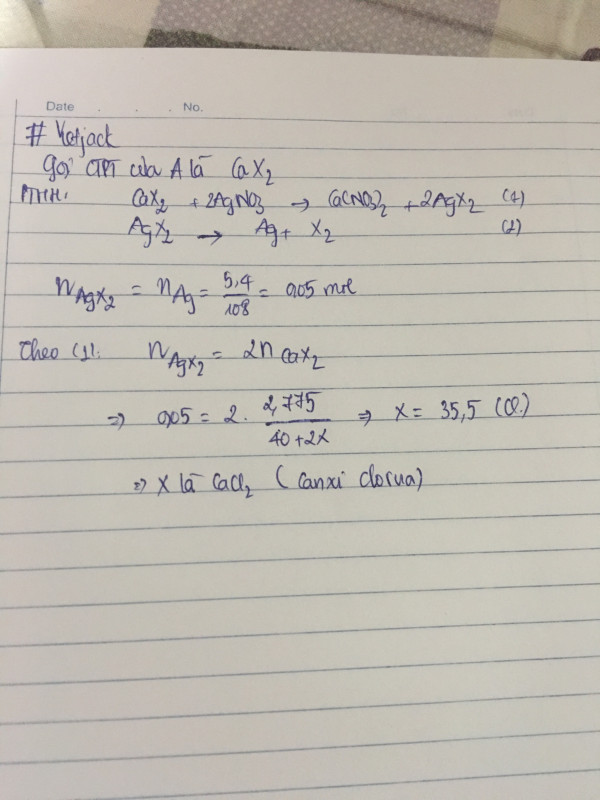 Date . . . No.
# Kotjack
gọi CTPT của A là CaX₂
PTHH: CaX₂ + 2AgNO₃ → Ca(NO₃)₂ + 2AgX₂ (1)
AgX₂ → Ag + X₂ (2)
n AgX₂ = n Ag = 5,4/108 = 0,05 mol
Theo (1): n AgX₂ = 2n CaX₂
⇒ 0,05 = 2. 2,775/40+2X ⇒ X = 35,5 (Cl.)
⇒ X là CaCl₂ (Canxi clorua)